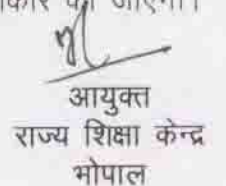 की जाएगी।
आयुक्त
राज्य शिक्षा केन्द्र
भोपाल